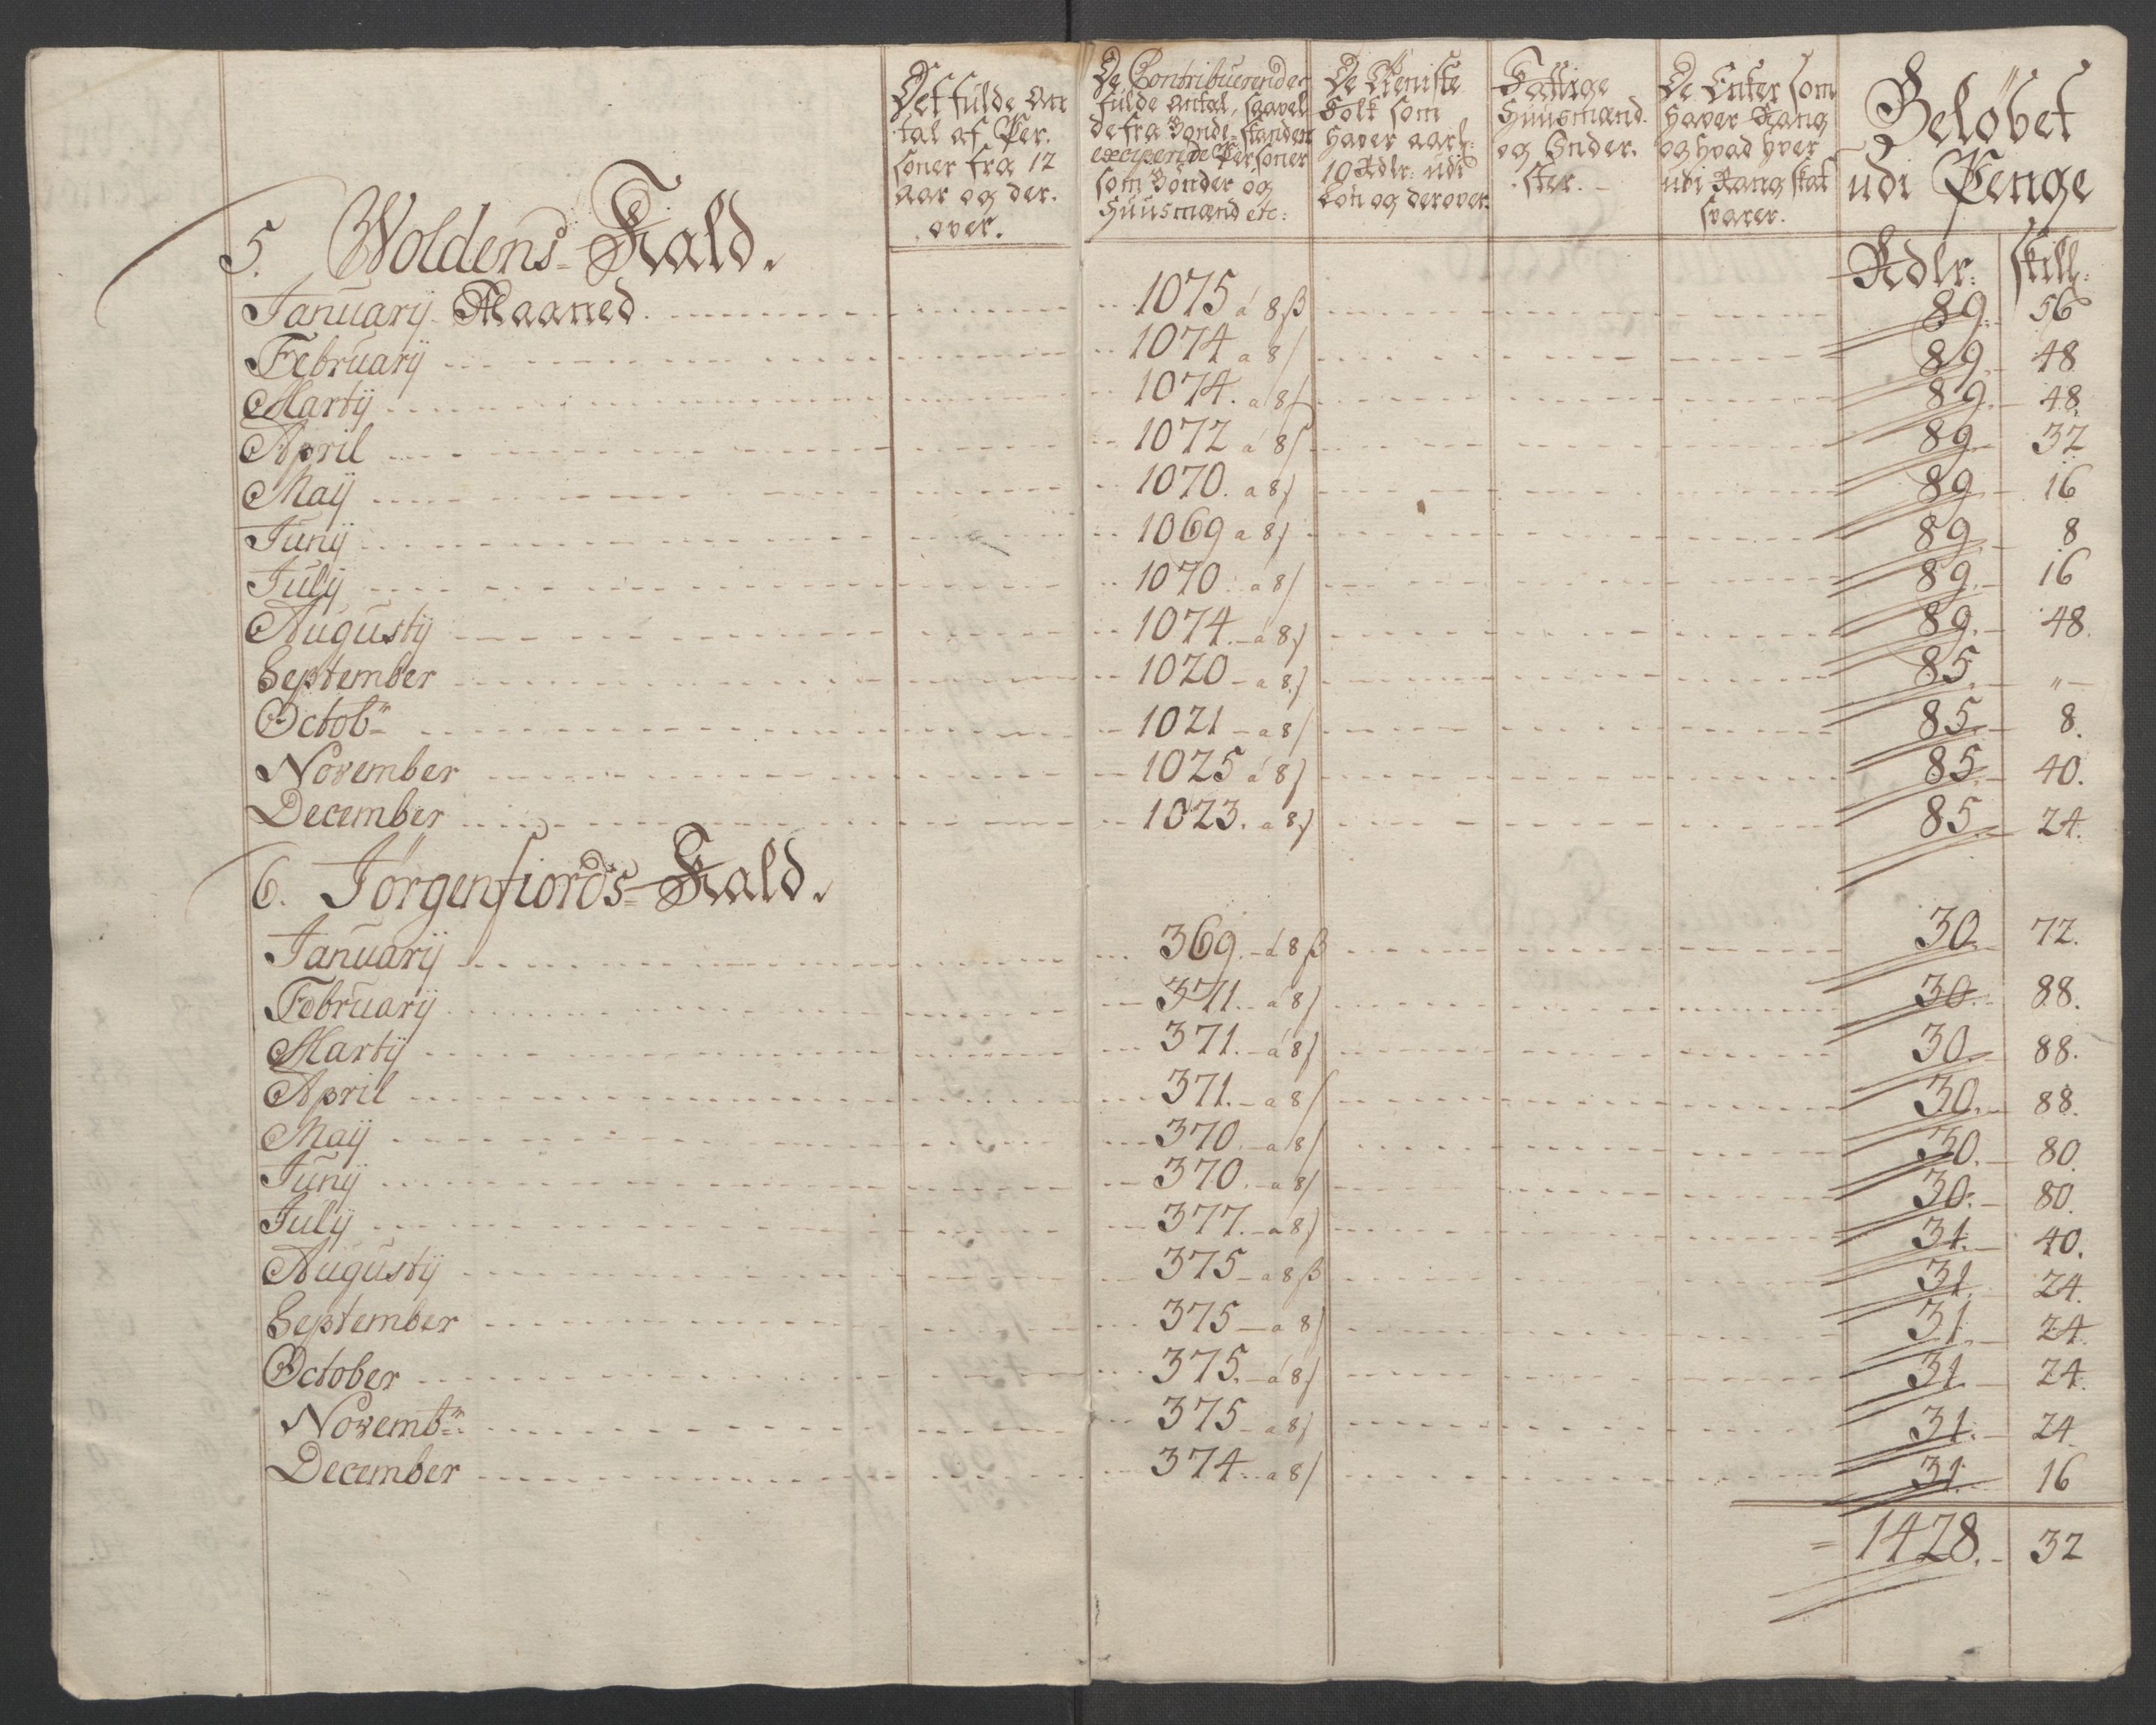 Det fulde An
tal af Per.
soner fra 12
aar og der.
over.
De Contribuerendes
fulde Antal, saavel
de fra Bonde-standen
eximerede Personer
som Bönder og
Huusmænd etc:
De Tieniste
Folk som
haver aarl:
10 Rdlr: udi
Lön og derover.
Fattige
Huusmænd.
og Inder.
ster.
De Enker som
haver Rang
og hvad hver
udi Rang skat
svarer.
Belöbet
udi Penge
Rdlr: skill:
5. Woldens-Kald.
January Maaned. 1075 á 8 β 89. 56
February 1074 a 8 β 89. 48
Martij 1074. a 8 β 89. 48.
April 1072 á 8 β 89. 32
Maij 1070. a 8 β 89. 16
Junij 1069 a 8 β 89. 8
Julij 1070. a 8 β 89. 16
Augustij 1074. á 8 β 89. 48.
September 1020 - a 8 β 85. "
Octobr 1021 - a 8 β 85. 8.
November 1025 á 8 β 85. 40.
December 1023. a 8 β 85. 24.
6. Jörgenfiords-Kald.
Januarij 369. - á 8 β 30. 72.
Februarij 371. - á 8 β 30. 88.
Martij 371. - á 8 β 30. 88.
April 371. - a 8 β 30. 88.
Maij 370. - a 8 β 30. 80.
Junij 370. - a 8 β 30. 80.
Julij 377. - a 8 β 31. 40.
Augustij 375 - a 8 β 31. 24.
September 375 - a 8 β 31. 24.
October 375. - á 8 β 31. 24.
Novembr: 375 - a 8 β 31. 24
December 374. - a 8 β 31. 16
= 1428. - 32